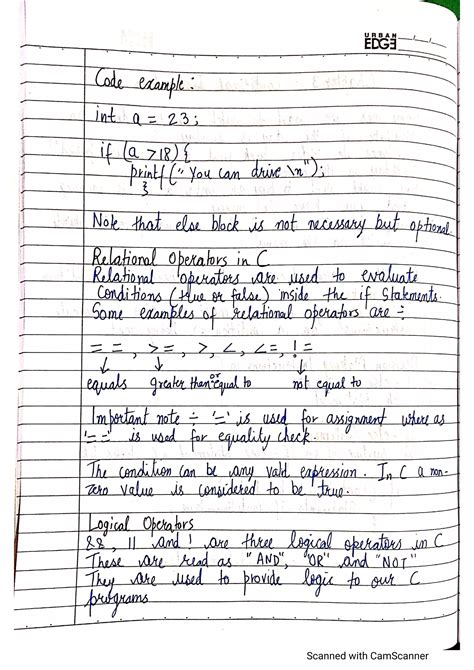 URBAN
EDGE
Code example:
int a = 23;
if (a >18) {
printf ("You can drive \n");
}
Note that else block is not necessary but optional.
Relational Operators in C
Relational operators are used to evaluate
Conditions (true or false) inside the if statements.
Some examples of relational operators are ÷
= =, >=, >, <, <=, !=
equals greater than or equal to not equal to
Important note ÷ '=' is used for assignment where as
'= =' is used for equality check.
The condition can be any valid expression. In C a non-
zero value is considered to be true.
Logical Operators
&&, || and ! are three logical operators in C
These are read as "AND", "OR" and "NOT"
They are used to provide logic to our C
programs
Scanned with CamScanner